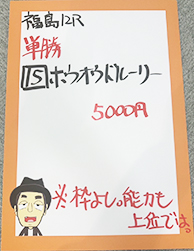 福島12R
単勝
15ホウオウドルーリー
5000円
※枠よし。能力も
上位では。